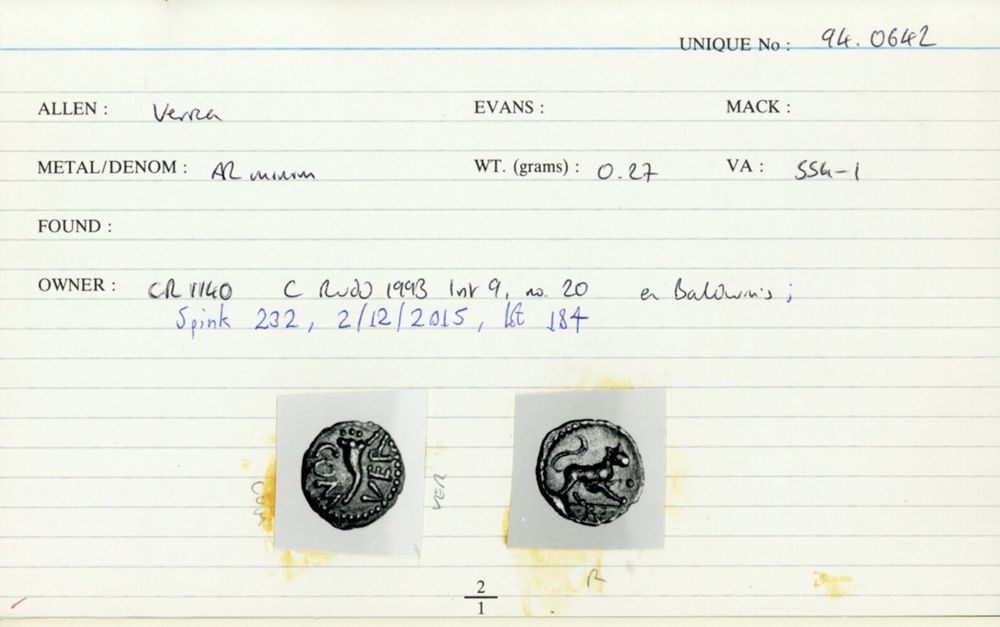 UNIQUE No : 94.0642
ALLEN : Verica EVANS : MACK :
METAL/DENOM : AR minim WT. (grams) : 0.27 VA : 554-1
FOUND :
OWNER : CR 1140 C Rudd 1993 list 9, no. 20 ex Baldwins ;
Spink 232, 2/12/2015, lot 184
COM VER
R
2
1